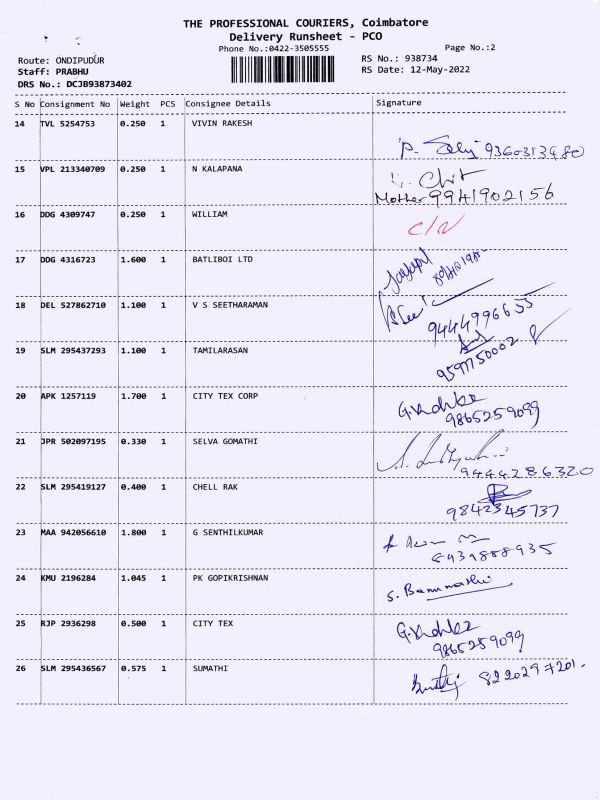 THE PROFESSIONAL COURIERS, Coimbatore
Delivery Runsheet - PCO
Phone No.:0422-3505555
Page No.:2
Route: ONDIPUDUR
RS No.: 938734
Staff: PRABHU
RS Date: 12-May-2022
DRS No.: DCJB93873402
S No Consignment No Weight PCS Consignee Details Signature
14 TVL 5254753 0.250 1 VIVIN RAKESH
9360313480
15 VPL 213340709 0.250 1 N KALAPANA
Mother 9941902156
16 DDG 4309747 0.250 1 WILLIAM
17 DDG 4316723 1.600 1 BATLIBOI LTD
18 DEL 527862710 1.100 1 V S SEETHARAMAN
9444996655
19 SLM 295437293 1.100 1 TAMILARASAN
9597750002
20 APK 1257119 1.700 1 CITY TEX CORP
9865259099
21 JPR 502097195 0.330 1 SELVA GOMATHI
9444286320
22 SLM 295419127 0.400 1 CHELL RAK
9842345737
23 MAA 942056610 1.800 1 G SENTHILKUMAR
8931888935
24 KMU 2196284 1.045 1 PK GOPIKRISHNAN
S. Banumathi
25 RJP 2936298 0.500 1 CITY TEX
9865259099
26 SLM 295436567 0.575 1 SUMATHI
8220297201.